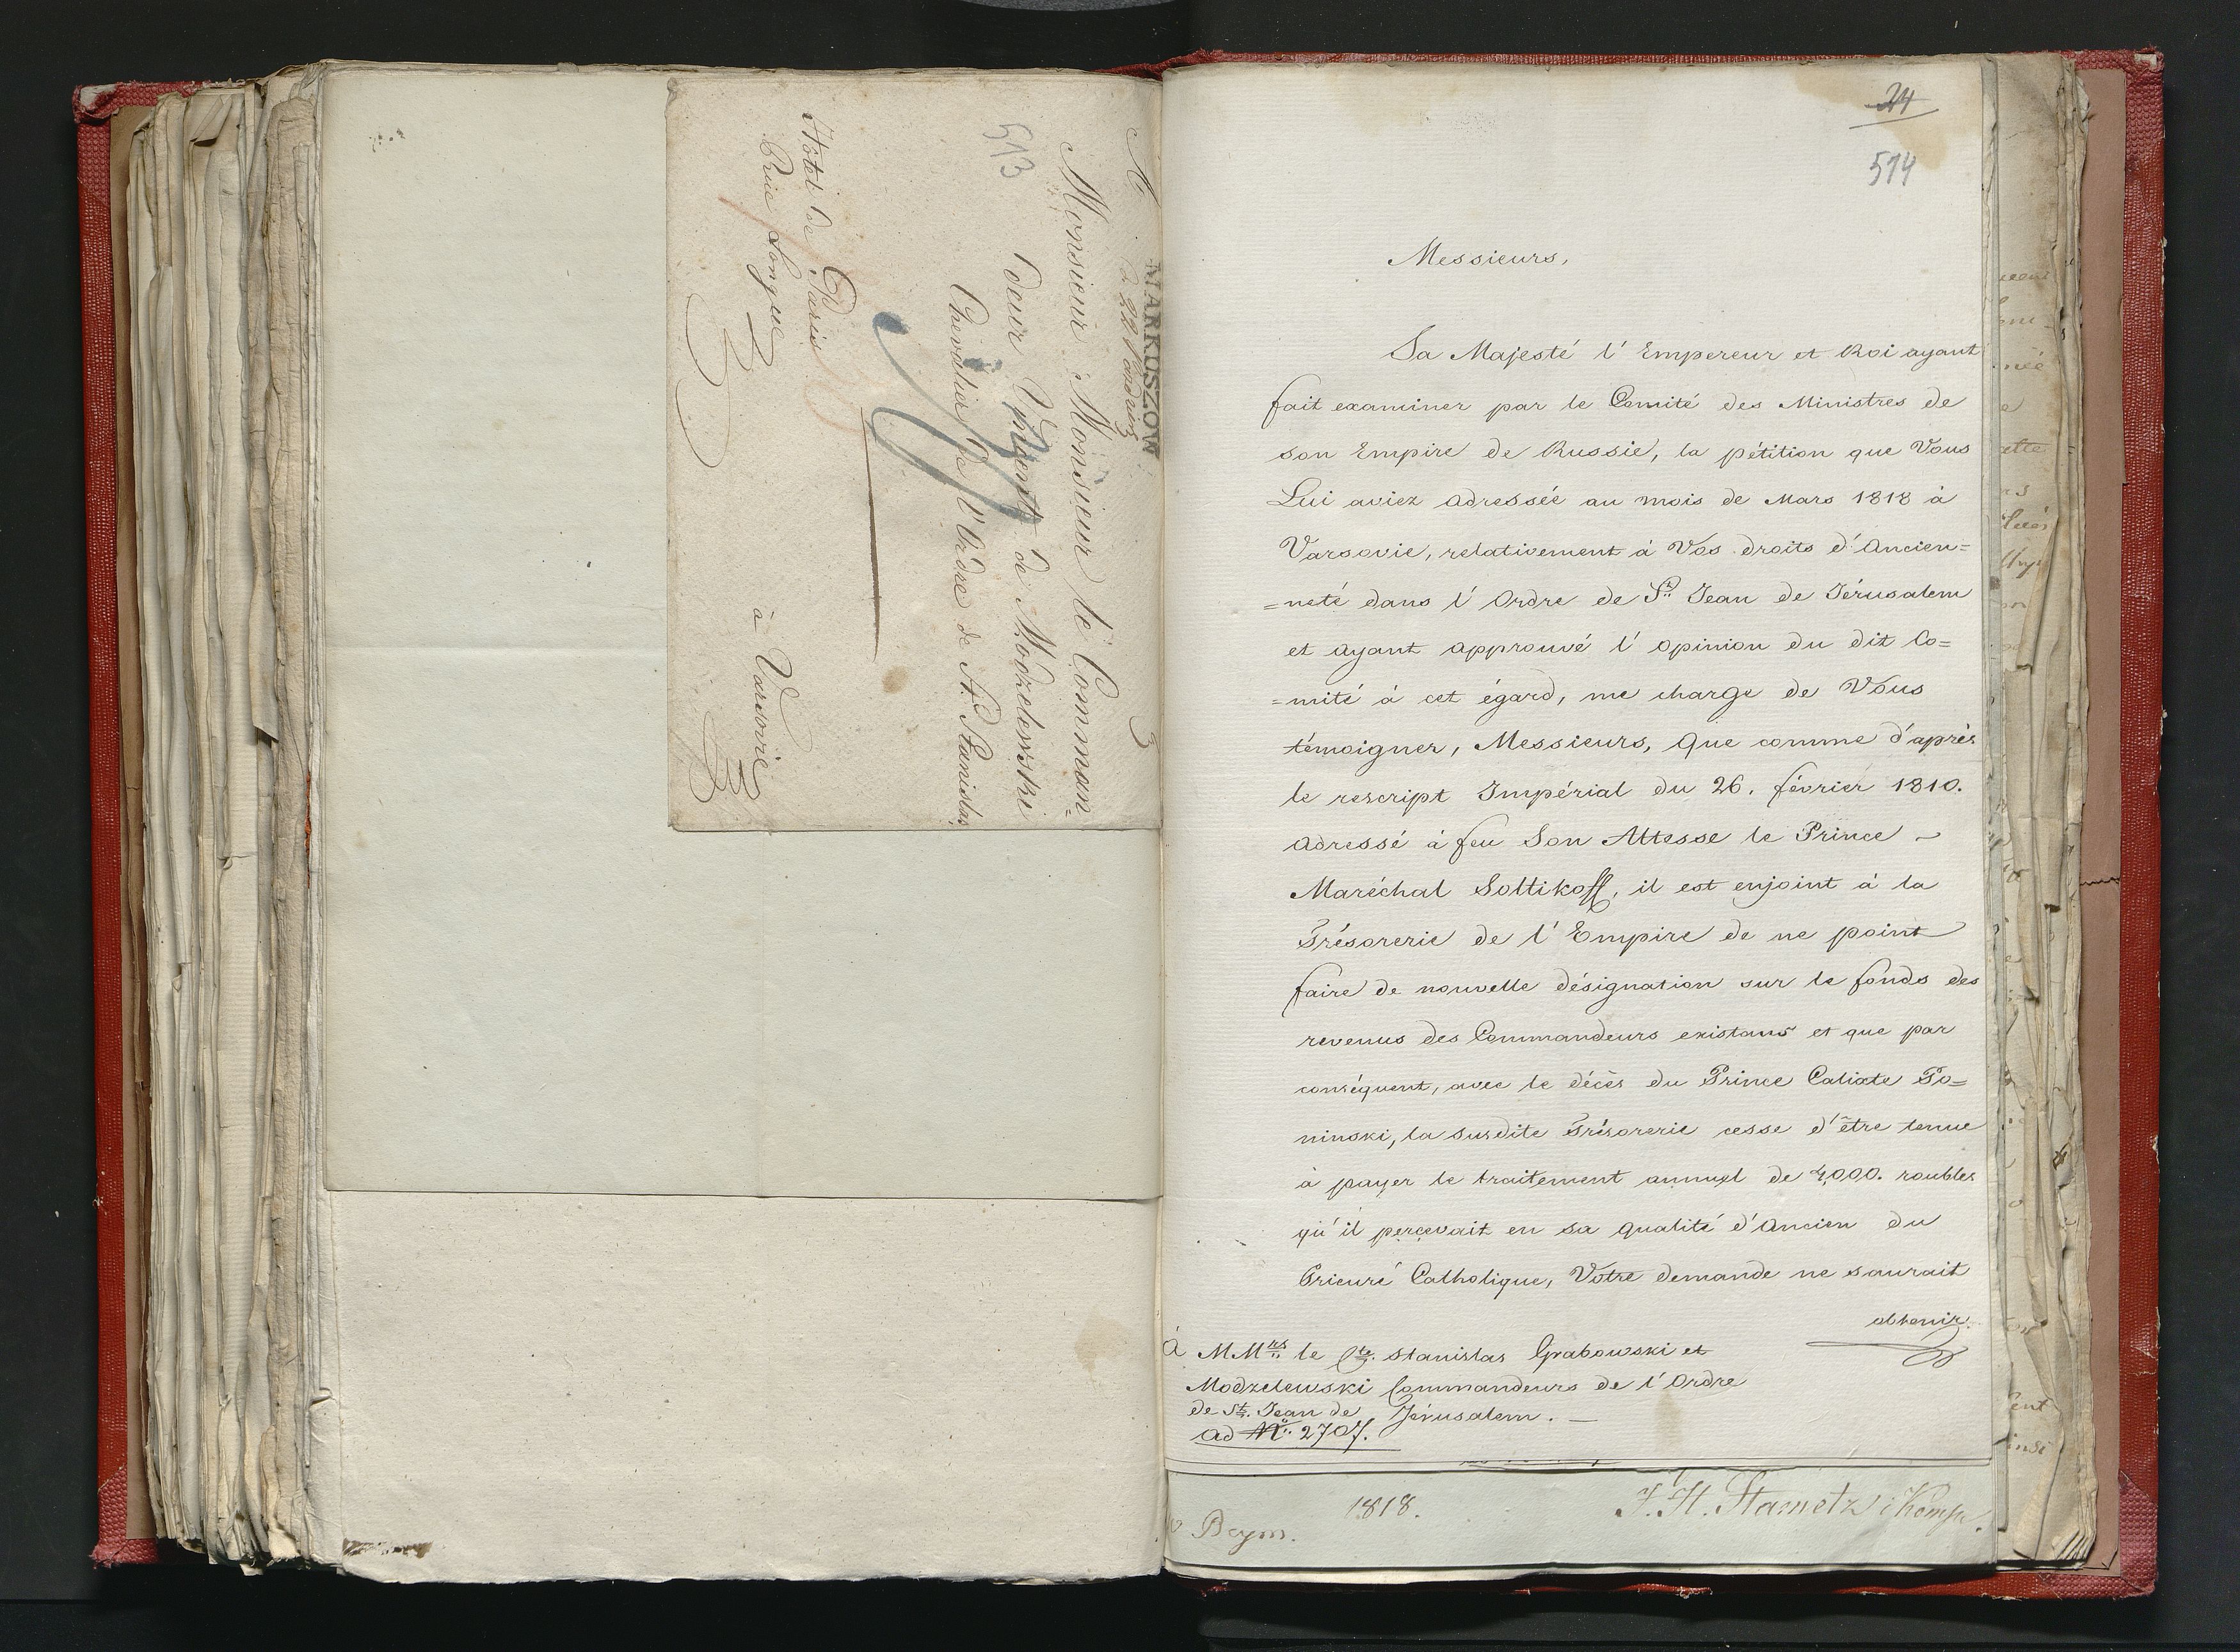 A
MARKUSZOW
3
Monsieur Monsieur le Comman=
deur Vincent de Modzelewski
Chevalier de l'Ordre de St. Stanislas
513
Hôtel de Paris
Rue Longue
à Varsovie
24
514
Messieurs,
Sa Majesté l'Empereur et Roi ayant
fait examiner par le Comité des Ministres de
son Empire de Russie, la pétition que Vous
Lui aviez adressée au mois de Mars 1818 à
Varsovie, relativement à Vos droits d'Ancien=
=neté dans l'Ordre de St. Jean de Jérusalem
et ayant approuvé l'opinion du dit Co=
=mité à cet égard, me charge de Vous
témoigner, Messieurs, que comme d'après
le rescript Impérial du 26. février 1810.
adressé à feu Son Altesse le Prince
Maréchal Soltikoff, il est enjoint à la
Trésorerie de l'Empire de ne point
faire de nouvelle désignation sur le fonds des
revenus des Commandeurs existans et que par
conséquent, avec le décès du Prince Calixte Po=
ninski, la susdite Trésorerie cesse d'être tenue
à payer le traitement annuel de 4,000. roubles
qu'il percevait en sa qualité d'Ancien du
Prieuré Catholique, Votre demande ne saurait
obtenir
à MMrs le Cte. Stanislas Grabowski et
Modzelewski Commandeurs de l'Ordre
de St. Jean de Jérusalem. —
ad No. 2707.
1818.
J. H. Stametz i Komp.
Bcym.